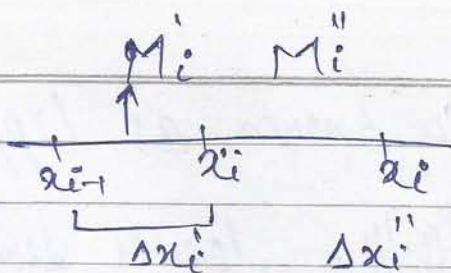 Mᵢ' Mᵢ''
xᵢ₋₁ xᵢ' xᵢ
Δxᵢ' Δxᵢ''